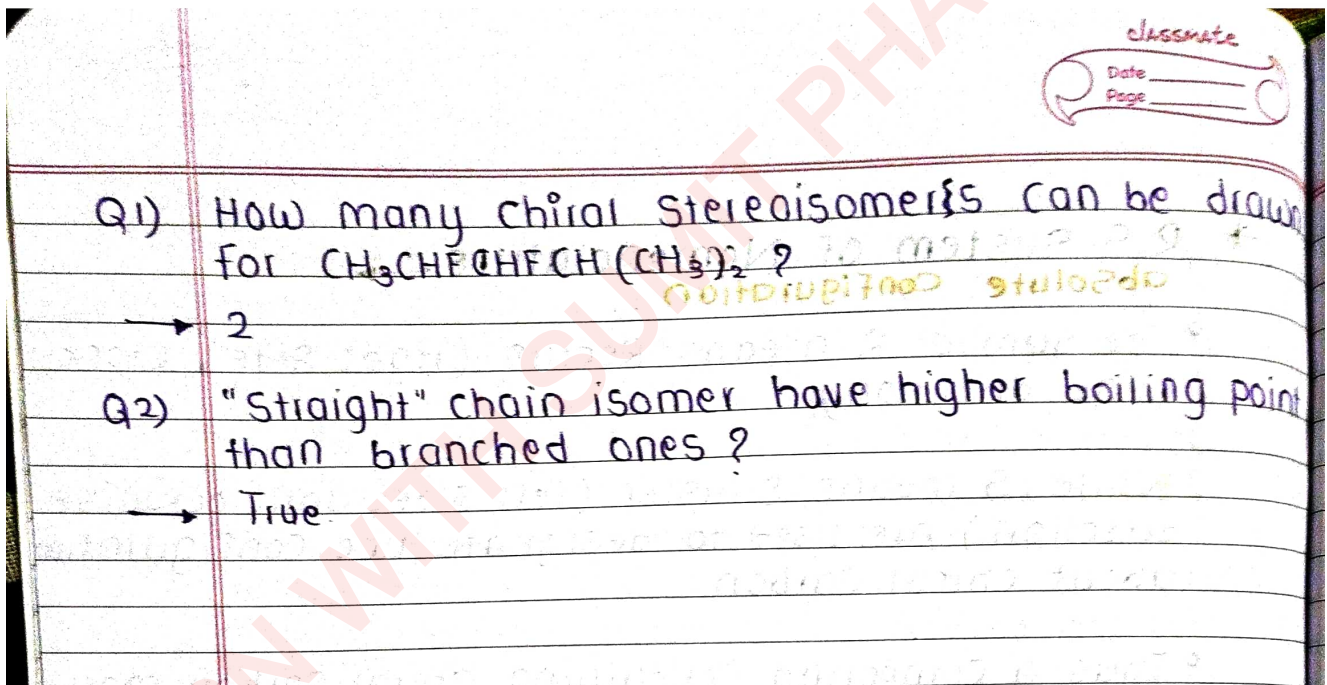 classmate
Date
Page
Q1) How many chiral stereoisomers can be drawn
for CH₃CHFCHFCH(CH₃)₂ ?
→ 2
Q2) "Straight" chain isomer have higher boiling point
than branched ones ?
→ True
absolute configuration
N WITH SUMIT PHA